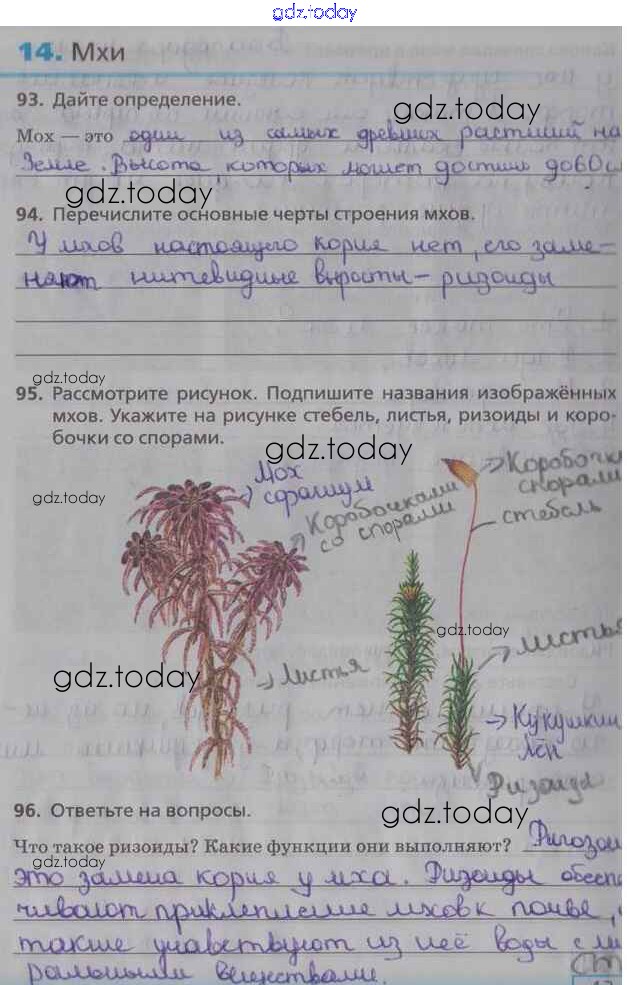 gdz.today
14. Мхи
93. Дайте определение.
gdz.today
Мох — это один из самых древних растиний на
Земле. Высота, которых может достичь до 60 с
gdz.today
94. Перечислите основные черты строения мхов.
У мхов настоящего корня нет, его заме-
няют нитевидные выросты – ризоиды
gdz.today
95. Рассмотрите рисунок. Подпишите названия изображённых
мхов. Укажите на рисунке стебель, листья, ризоиды и коро-
бочки со спорами.
gdz.today
Мох
сфагнум
Коробочка
спорами
gdz.today
Коробочками
со спорами
стебель
gdz.today
листья
Листья
gdz.today
Кукушкин
лён
Ризоиды
96. Ответьте на вопросы.
gdz.today
Что такое ризоиды? Какие функции они выполняют?
gdz.today
это замена корня у мха. Ризоиды обесп
чивают приклепление мхов к почве,
также учавствуют из неё воды с ми
ральными веществами.